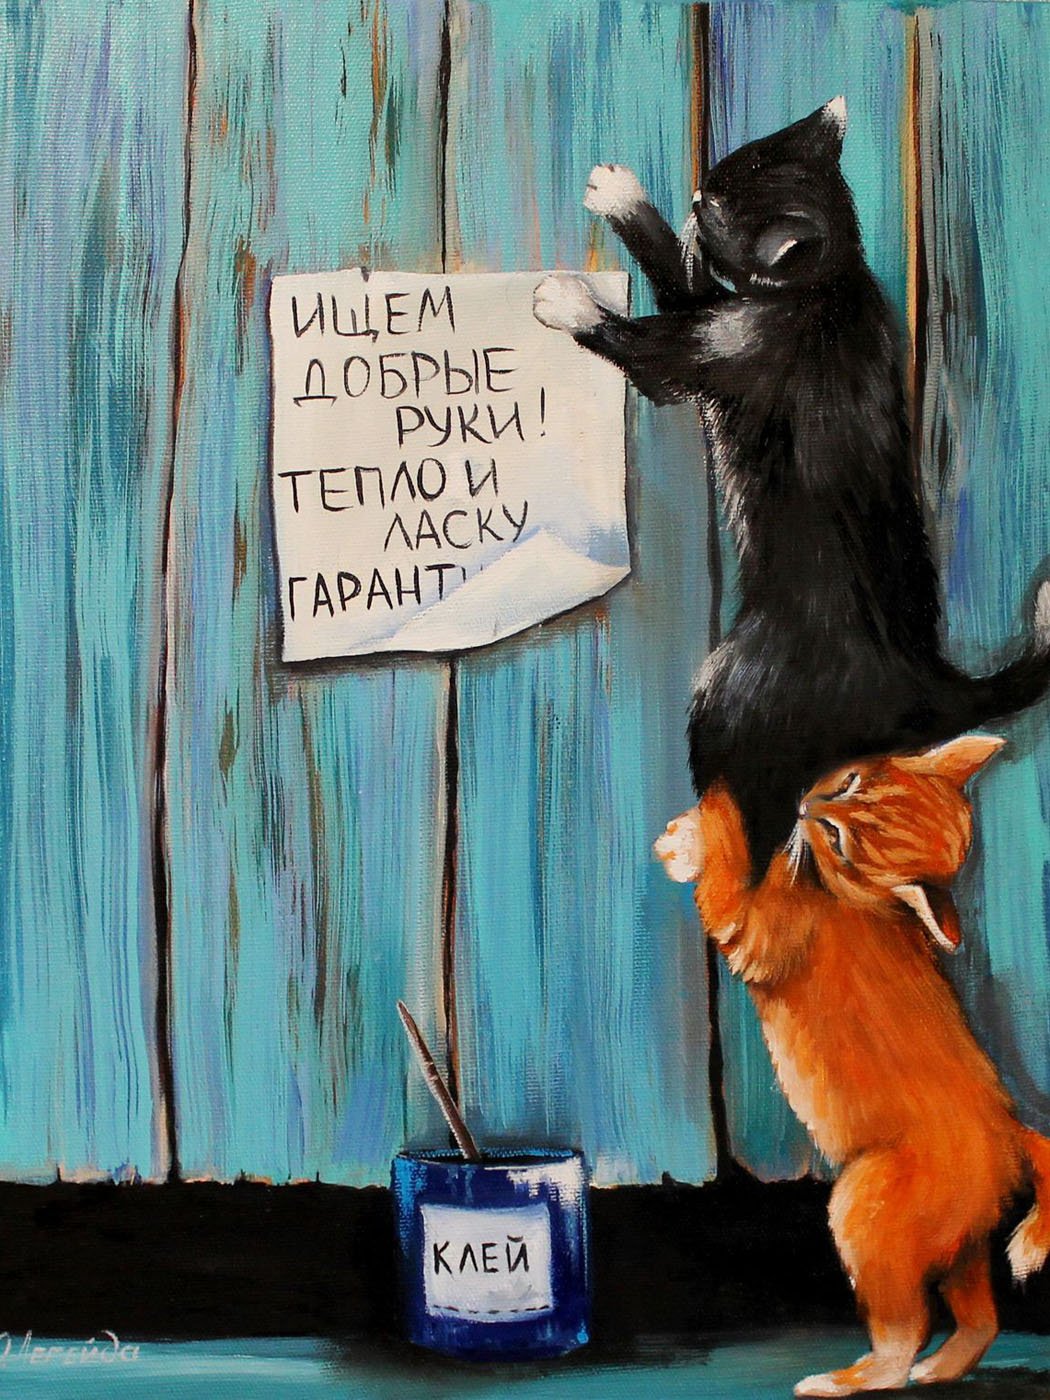 ИЩЕМ
ДОБРЫЕ
РУКИ!
ТЕПЛО И
ЛАСКУ
ГАРАНТИ
КЛЕЙ